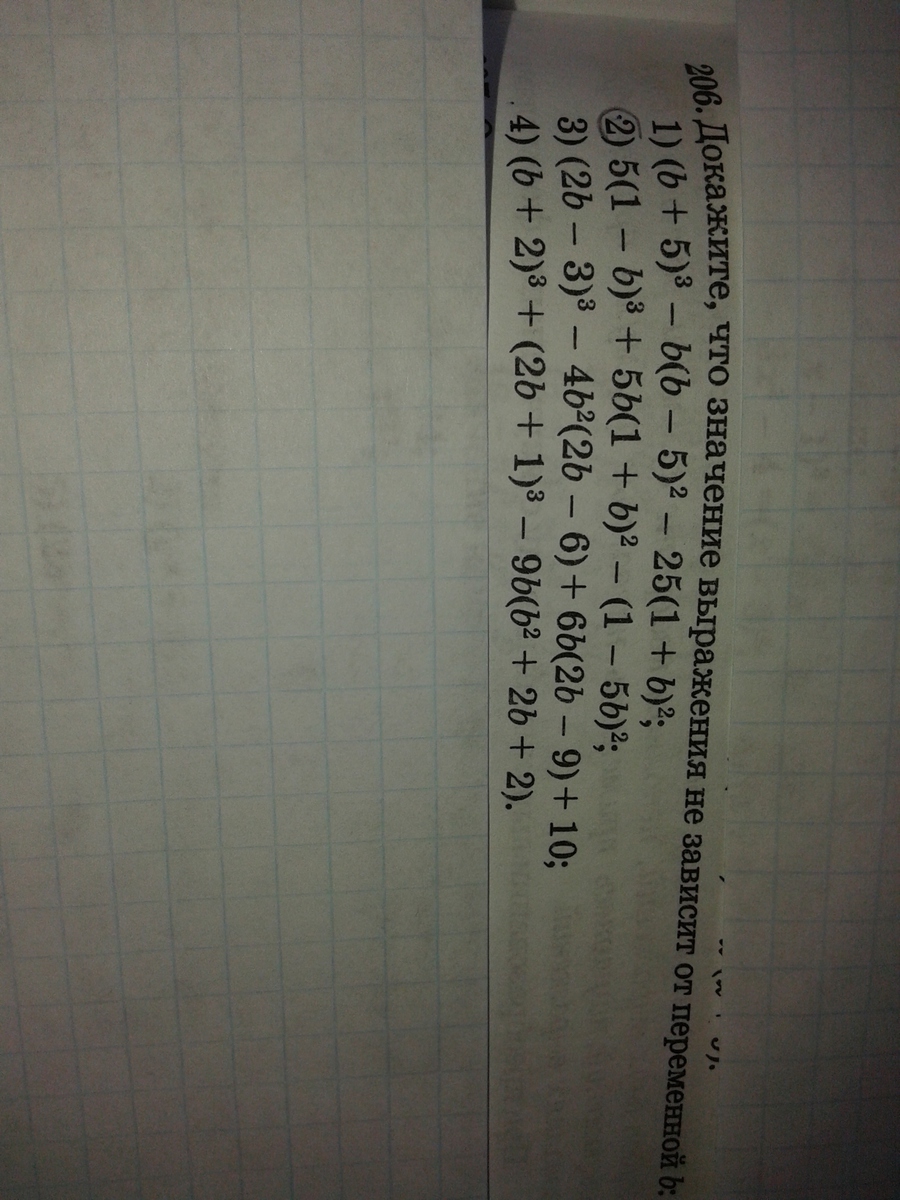 206. Докажите, что значение выражения не зависит от переменной b:
1) (b + 5)³ − b(b − 5)² − 25(1 + b)²;
2) 5(1 − b)³ + 5b(1 + b)² − (1 − 5b)²;
3) (2b − 3)³ − 4b²(2b − 6) + 6b(2b − 9) + 10;
4) (b + 2)³ + (2b + 1)³ − 9b(b² + 2b + 2).